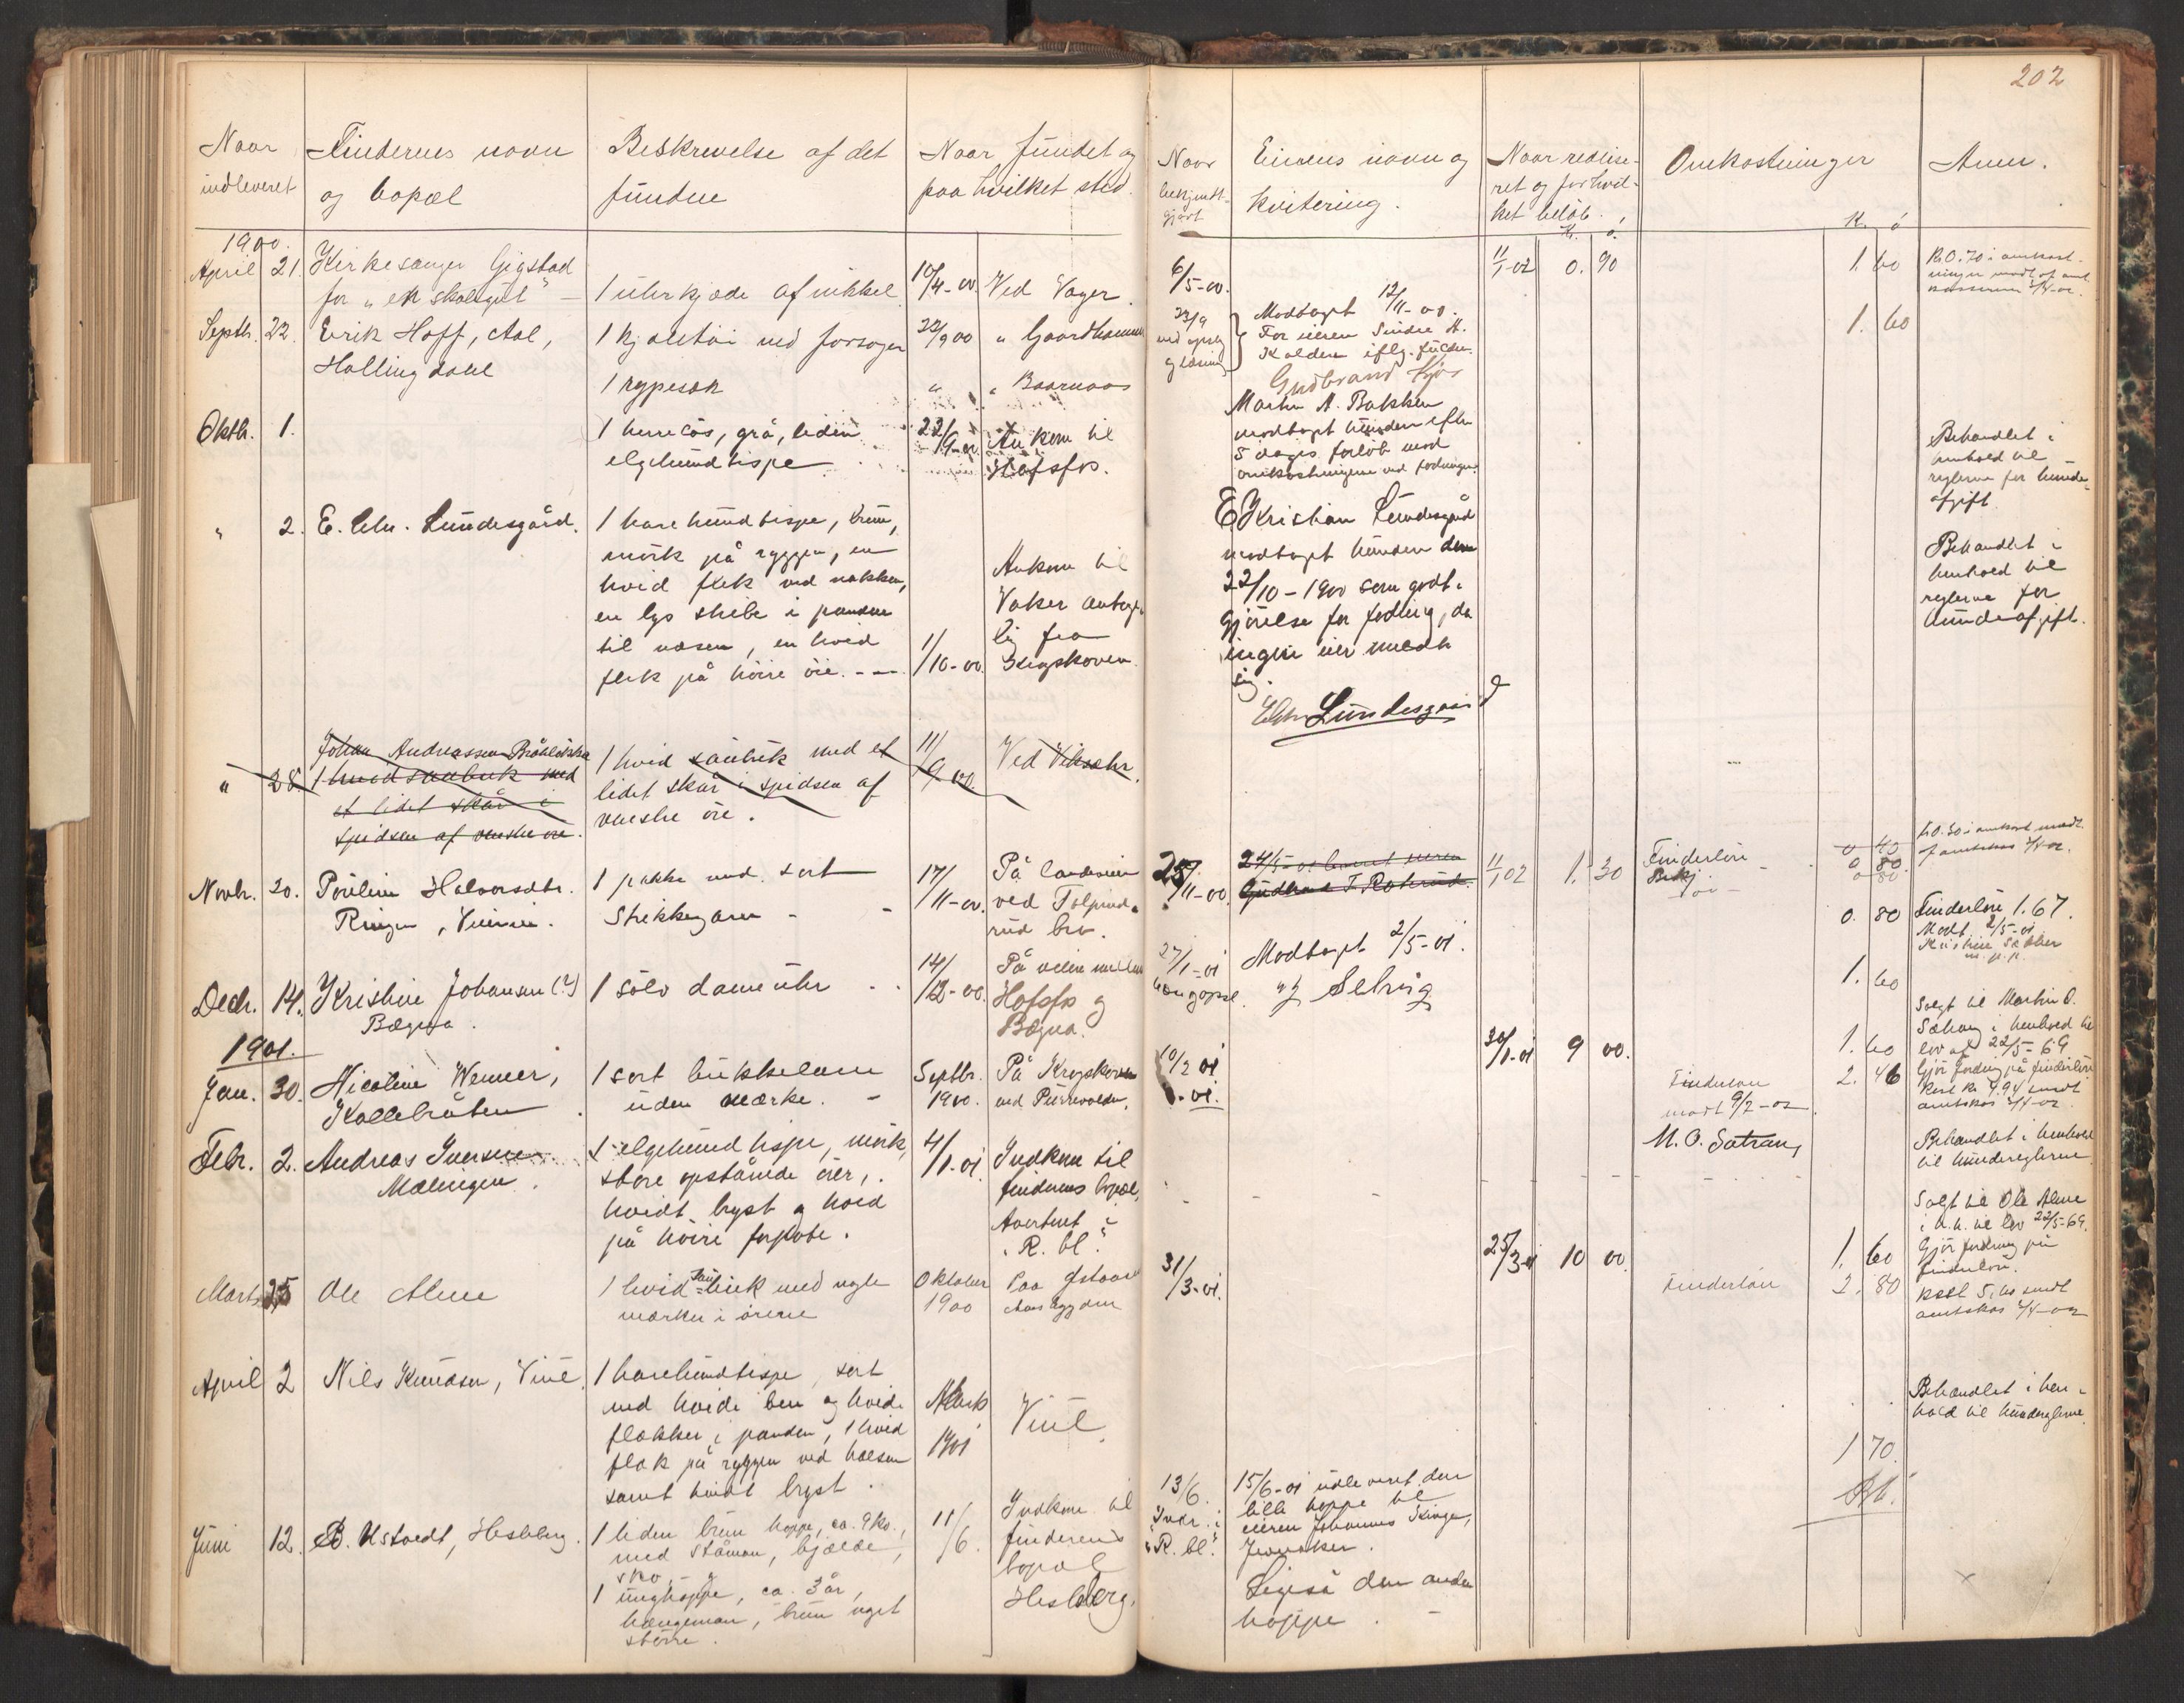 202
Naar indleveret
Finderens navn og bopæl
Beskrivelse af det fundne
Naar fundet og paa hvilket sted.
Naar bekjendtgjort
Eierens navn og kvitering.
Naar realiseret og for hvilket beløb.
Omkostninger
Anm.
K. ö
1900.
April 21. Kirkesanger Gigstad
for "en skolegut" –
1 uhrkjæde af nikkel
10/4-00. Ved Vager.
6/5-00.
11/1-02 0. 90
1. 60
Septb. 22. Erik Hoff, Aal,
Hallingdal
1 kjøletøi med forsager
22/9 00
1 rypesæk
23/9
Modtaget 12/11-00.
For eieren Sindre
Gudbrand
1. 60
Oktb. 1.
1 herreløs, grå, liden
elgehundtispe
22/9-00 Ankom til
Hofsfos.
Martin A. Bakken
modtaget hunden efter
5 dages forløb mod
omkostningerne ved fodringen.
Behandlet i
henhold til
reglerne for hunde-
afgift
" 2. E. Chr. Lundesgård.
1 harehundtispe, brun,
mørk på ryggen, en
hvid flek ved nakken,
en lys stribe i panden
til næsen, en hvid
flek på høire øie. - -
1/10-00.
Ankom til
Vaker antage-
lig fra
Krogskoven
E Kristian Lundesgård
modtaget hunden den
22/10-1900 som godt-
gjörelse for fodring, da
ingen eier meldte
sig.
EChr Lundesgaard
Behandlet i
henhold til
reglerne for
hundeafgift.
" 28. Johan Andreassen Bråteløkka
1 hvid saubuk med
et lidet skår i
spidsen af venstre øre.
1 hvid saubuk med et
lidet skår i spidsen af
venstre øre.
11/9 00.
Ved Viksehr.
Novbr. 20. Pouline Halvorsdtr.
Ringen, Viieren.
1 pakke med sort
Strikkegarn -
17/11-00.
På landeveien
ved Tolpind-
rud bro.
25/11-00
24/5-01 leveret eieren
Gudbrand T. Roterud.
11/1 02 1. 30
Finderløn
Bekj
0 80
0. 80
Finderløn 1.67.
Modt. 2/5-01
m. p. p.
Decbr. 14. Kristine Johansen (?)
Bægna.
1 sølv dameuhr
14/12-00.
På veien mellem
Hofsfos og
Bægna.
27/1-01
Modtaget 2/5-01.
Selvig
1. 60
1901.
Jan. 30. Nicoline Wenner,
Kallebråten
1 sort bukkelam
uden mærke. -
Septbr.
1900.
På Krogskoven
10/2 01
30/1-01 9 00.
1. 60
2. 46
Finderløn
modt 9/2-02
M. O. Sætrang
Solgt til Martin O.
Sætrang i henhold til
lov af 22/5-69
Gjør fordring på finderløn
Rest kr 4.94 sendt
amtskas 2/4-02.
Febr. 2. Andreas Iversen
Mælingen.
1 elgehundtispe, mørk,
store opstående ører,
hvidt bryst og hvid
på høire forpote.
4/1-01
Indkom til
finderens bopæl.
Averteret i
"R. bl."
Behandlet i henhold
til hundereglerne
Marts 25 Ole Alme
1 hvid saubuk med uglet
mærker i ørerne
Oktober
1900
31/3-01.
25/3 01 10 00.
Finderløn
1. 60
2. 80
Solgt til Ole Alme
i h. h. til lov 22/5-69.
Gjør fordring på
finderløn.
Rest 5,60 sendt
amtskas 2/4-02
April 2 Nils Knudsen, Viul
1 harehundtispe, sort
med hvide ben og hvide
flækker i panden, 1 hvid
flæk på ryggen ved halsen
samt hvidt bryst.
Marts
1901
Viul
Behandlet i hen-
hold til hundereglerne.
1 70.
Juni 12. B. Ustvedt, Hesleberg.
1 liden brun hoppe, ca. 9 kv.,
med ståman, bjælde,
sko, - og
1 unghoppe, ca. 3 år,
hængeman, brun noget
større.
11/6.
Indkom til
finderens
bopæl
Hesleberg.
13/6.
Indr. i
"R. bl."
15/6-01 udleveret den
lille hoppe til
eieren Johannes Skinge,
Jevnaker.
Ligeså den anden
hoppe.